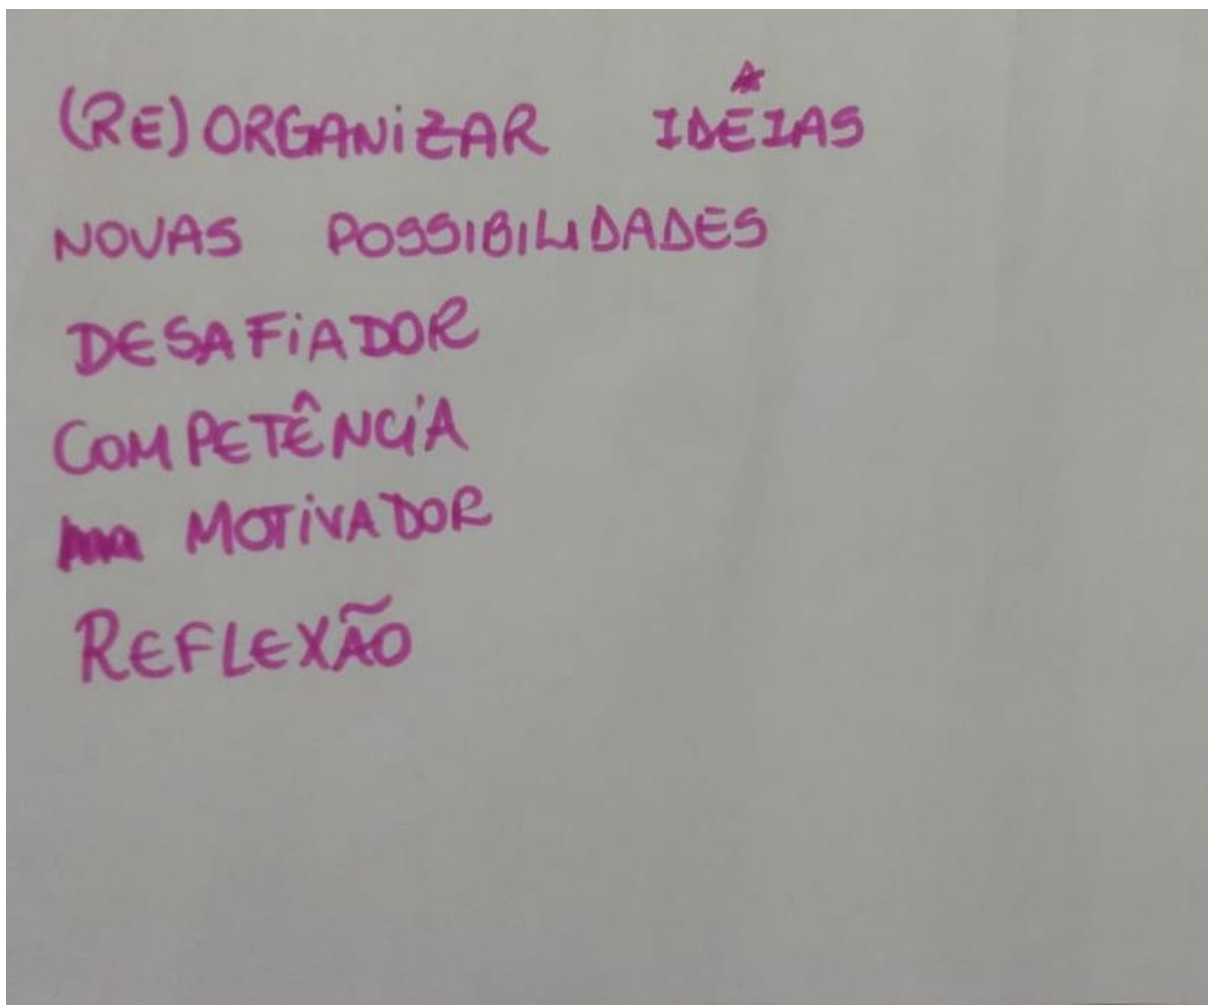 (RE) ORGANIZAR IDEIAS
NOVAS POSSIBILIDADES
DESAFIADOR
COMPETÊNCIA
MOTIVADOR
REFLEXÃO